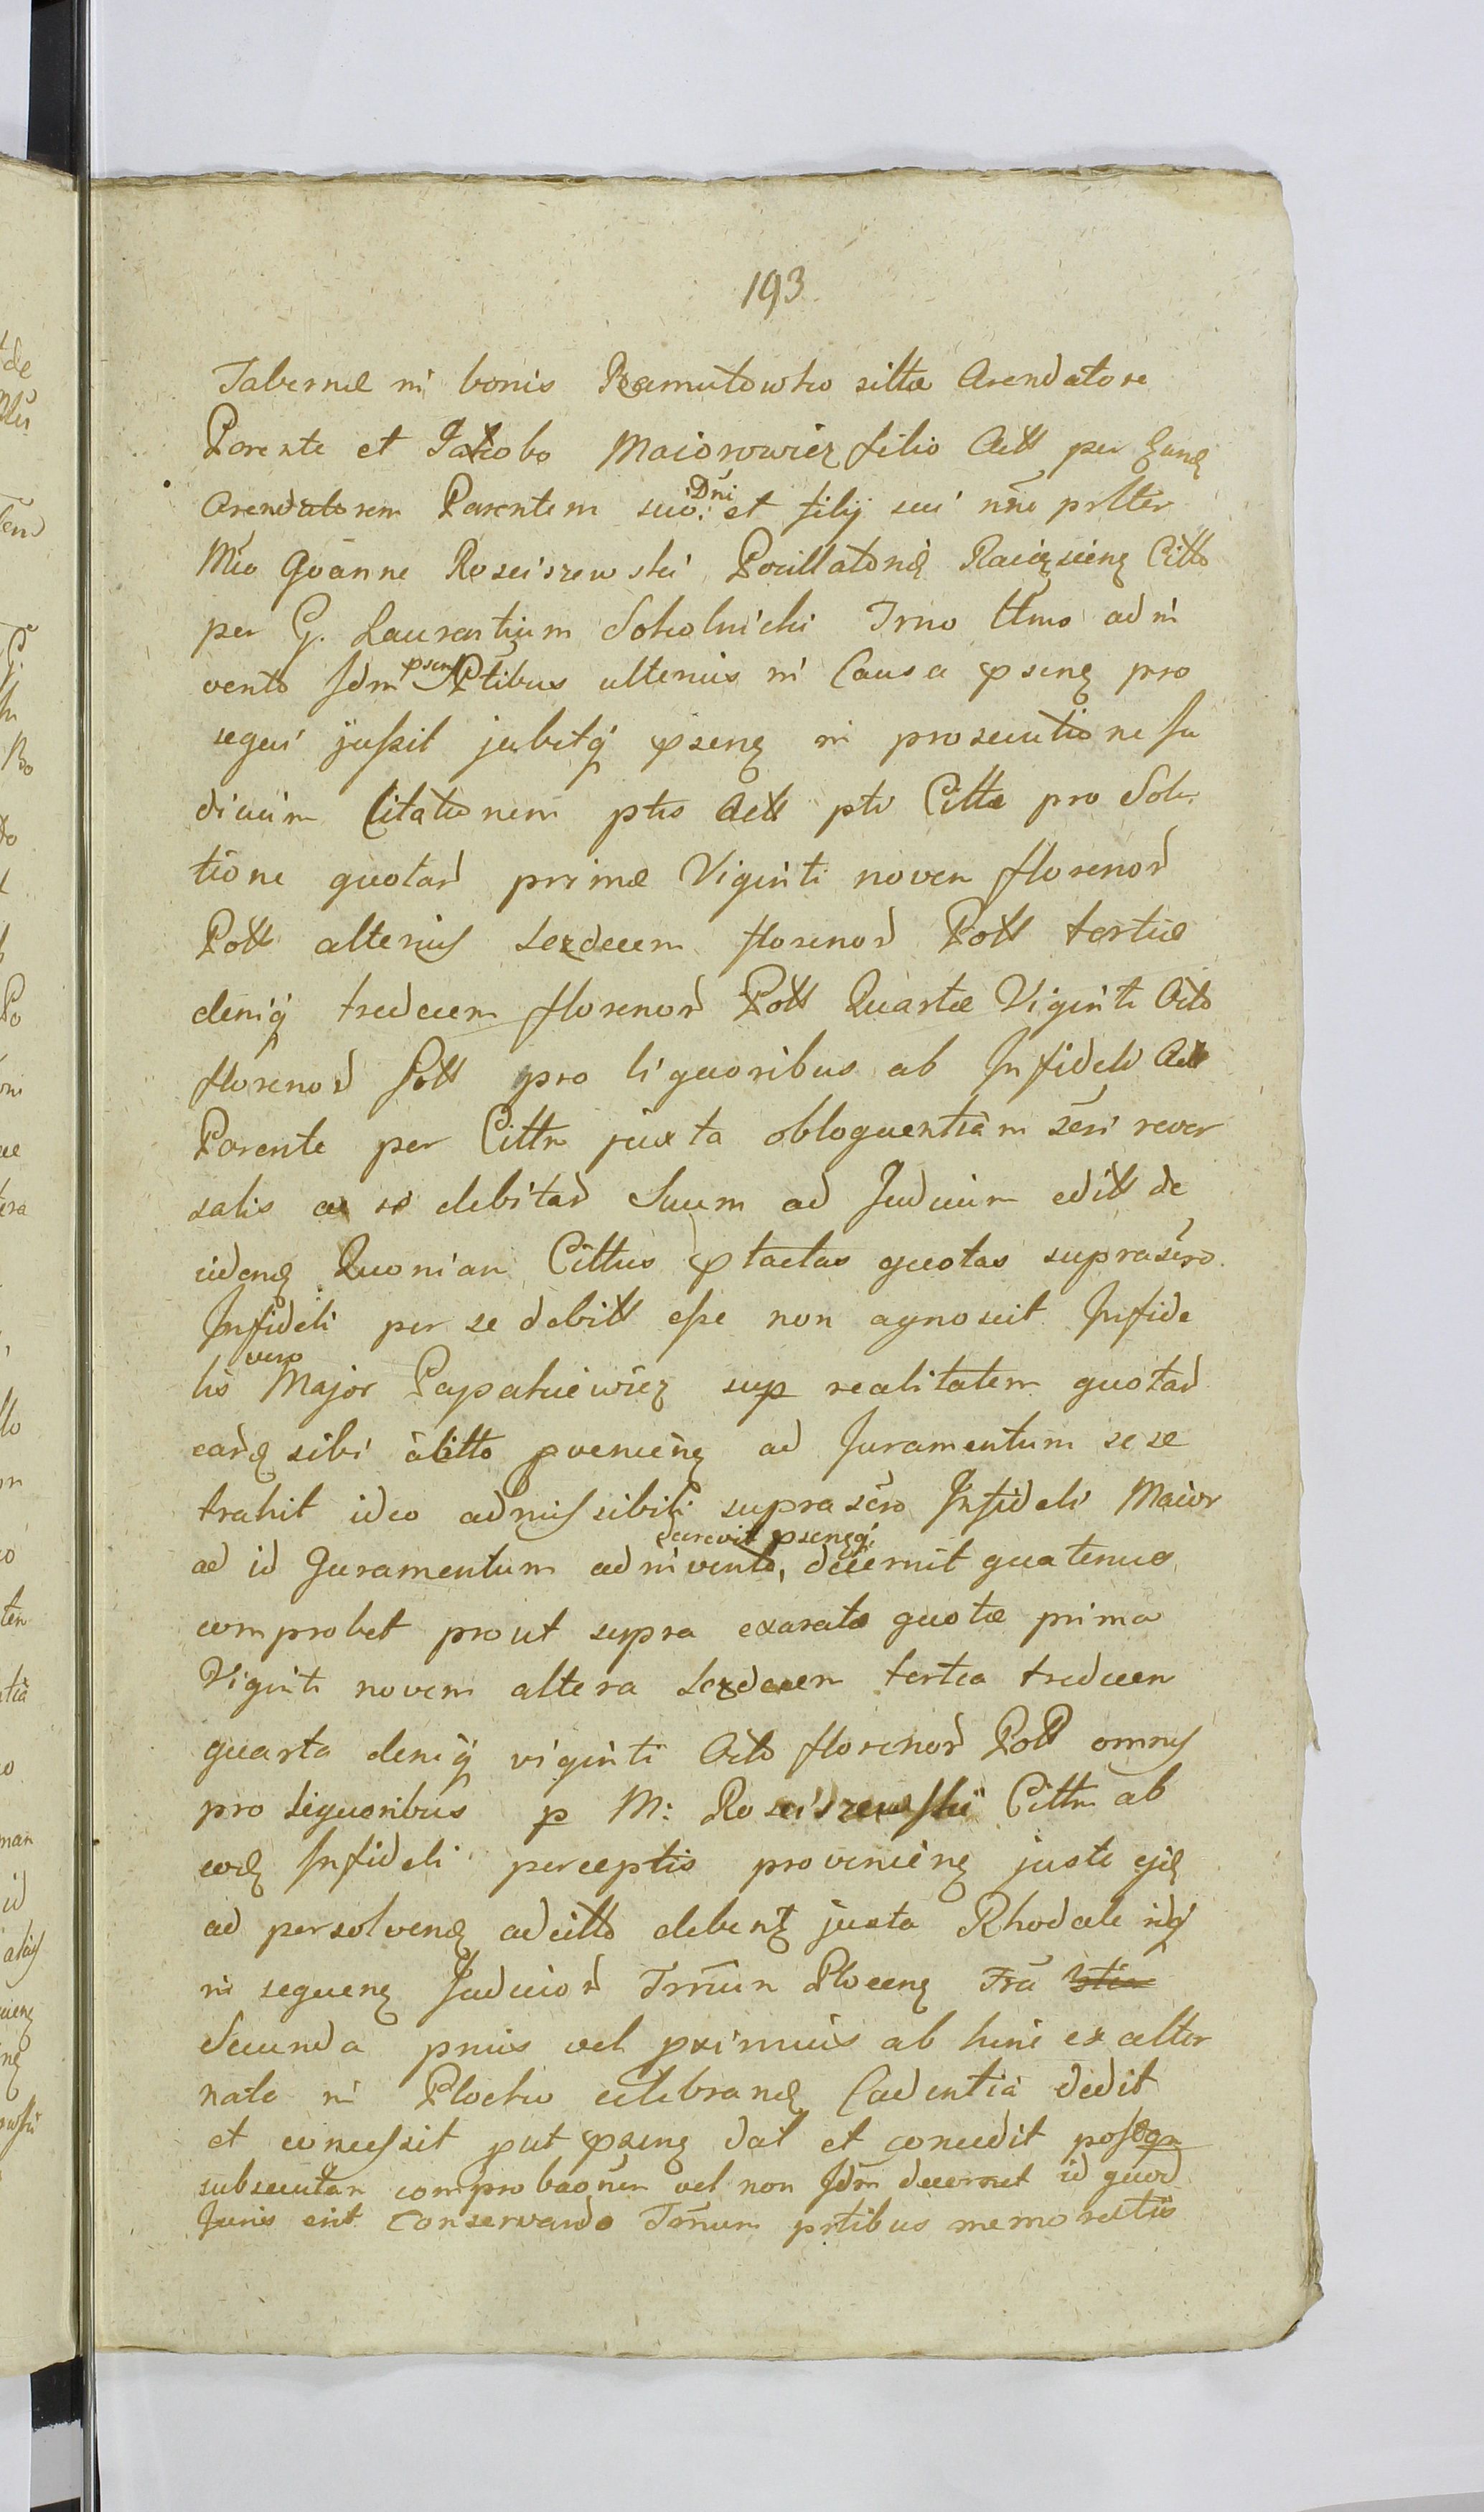 193
Tabernæ in bonis Ramutowko sittæ Arendatore
Parente et Jakobo Maiorowicz filio Actt per Eund
Arendatorem Parentem suo: Dni et filij sui nne prltter
Mco Joanne Rosciszewski Pocillatorie Raciąziens Citto
per G. Laurentium Sokolnicki Trno Ulmo ad in
vento Jdm psens Ptibus ulterius in Causa psens pro
sequi jussit jubetq psens in prosecutione Ju
dicium Citationem ptis Actt pto Citta pro Solu
tione quotar primæ Viginti novem florenor
Poll alterius sexdecem florenor Poll tertiæ
deniq tredecem florenor Poll Quartæ Viginti Octo
florenor Poll pro liquoribus ab Infideli Act
Parente per Cittm juxta obloquentiam scri rever
salis a se debitar Suum ad Judicium editt de
cidend Quoniam Cittus ptactas quotas suprascro
Infideli per se debitt esse non agnoscit Infide
lis vero Major Papakiewicz sup realitatem quotar
eard sibi a Citto pveniens ad Juramentum sese
trahit ideo admissibili suprascro Infideli Maior
ad id Juramentum ad invento, decrevit psensq decernit quatenus
comprobet prout supra exaratæ quotæ prima
Viginti novem altera sexdecem tertia tredecem
quarta deniq viginti Octo florenor Poll omnes
pro liquoribus p M: Rosciszewski Cittm ab
eod Infideli perceptis proveniens juste ejq
ad persolvend ad citto debent juxta Rhodale idq
in sequens Judicior Trnum Plocens Fra
Secunda pmis vel pximius ab hinc ex alter
nata in Plocko celebrand Cadentia dedit
et concessit put psens dat et concedit postqa
subsecutam comprobaonem vel non Jdm decernet id quod
Juris erit Conservando Trnum prtibus memoratis